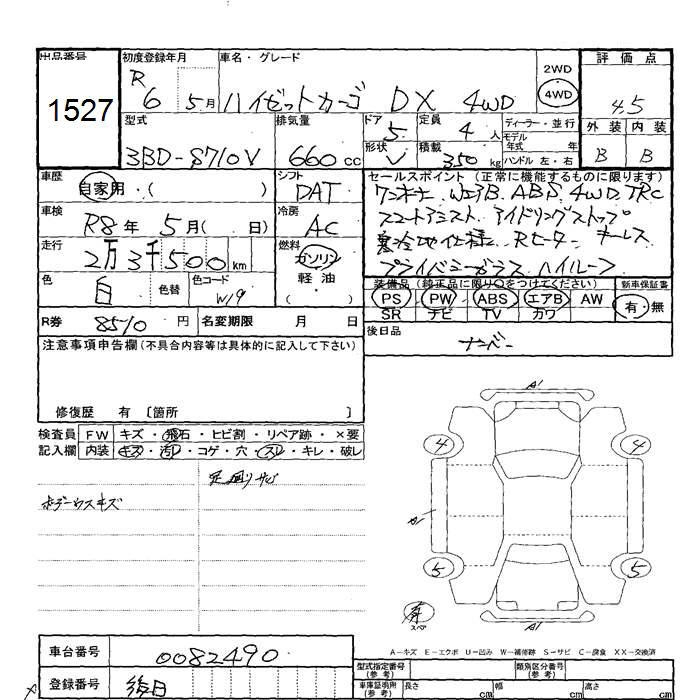 出品番号 初度登録年月 車名・グレード 評価点
1527 R 6 5月 ハイゼットカーゴ DX 4WD 2WD 4WD 4.5
型式 排気量 ドア 定員 ディーラー・並行 外装 内装
3BD-S710V 660cc 5 4人 モデル年式 年 B B
形状 V 積載 350kg ハンドル 左・右
車歴 シフト セールスポイント (正常に機能するものに限ります)
自家用・( ) DAT ワンオーナー WエアB ABS 4WD TRC
車検 冷房 スマートアシスト アイドリングストップ
R8年 5月( 日) AC 寒冷地仕様 Rヒーター キーレス
走行 燃料 プライバシーガラス ハイルーフ
2万3千500km ガソリン 軽・油 ( )
色 色替 色コード
白 W19
装備品 (純正品に限り○をつけてください) 新車保証書
PS PW ABS エアB AW 有・無
SR ナビ TV カワ
R券 8510円 名変期限 月 日
後日品
ナンバー
注意事項申告欄(不具合内容等は具体的に記入して下さい)
修復歴 有 〔箇所 〕
検査員 FW キズ・飛石・ヒビ割・リペア跡・×要
記入欄 内装 キズ・汚れ・コゲ・穴・スレ・キレ・破レ
足廻りサビ
ボデーウスキズ
A1
4 4
A1
5 5
スペア
A1
A-キズ E-エクボ U-凹み W-補修跡 S-サビ C-腐食 XX-交換済
車台番号 0082490
登録番号 後日
型式指定番号 (参考) 類別区分番号 (参考)
車庫証明用 (参考) 長さ cm 幅 cm 高さ cm